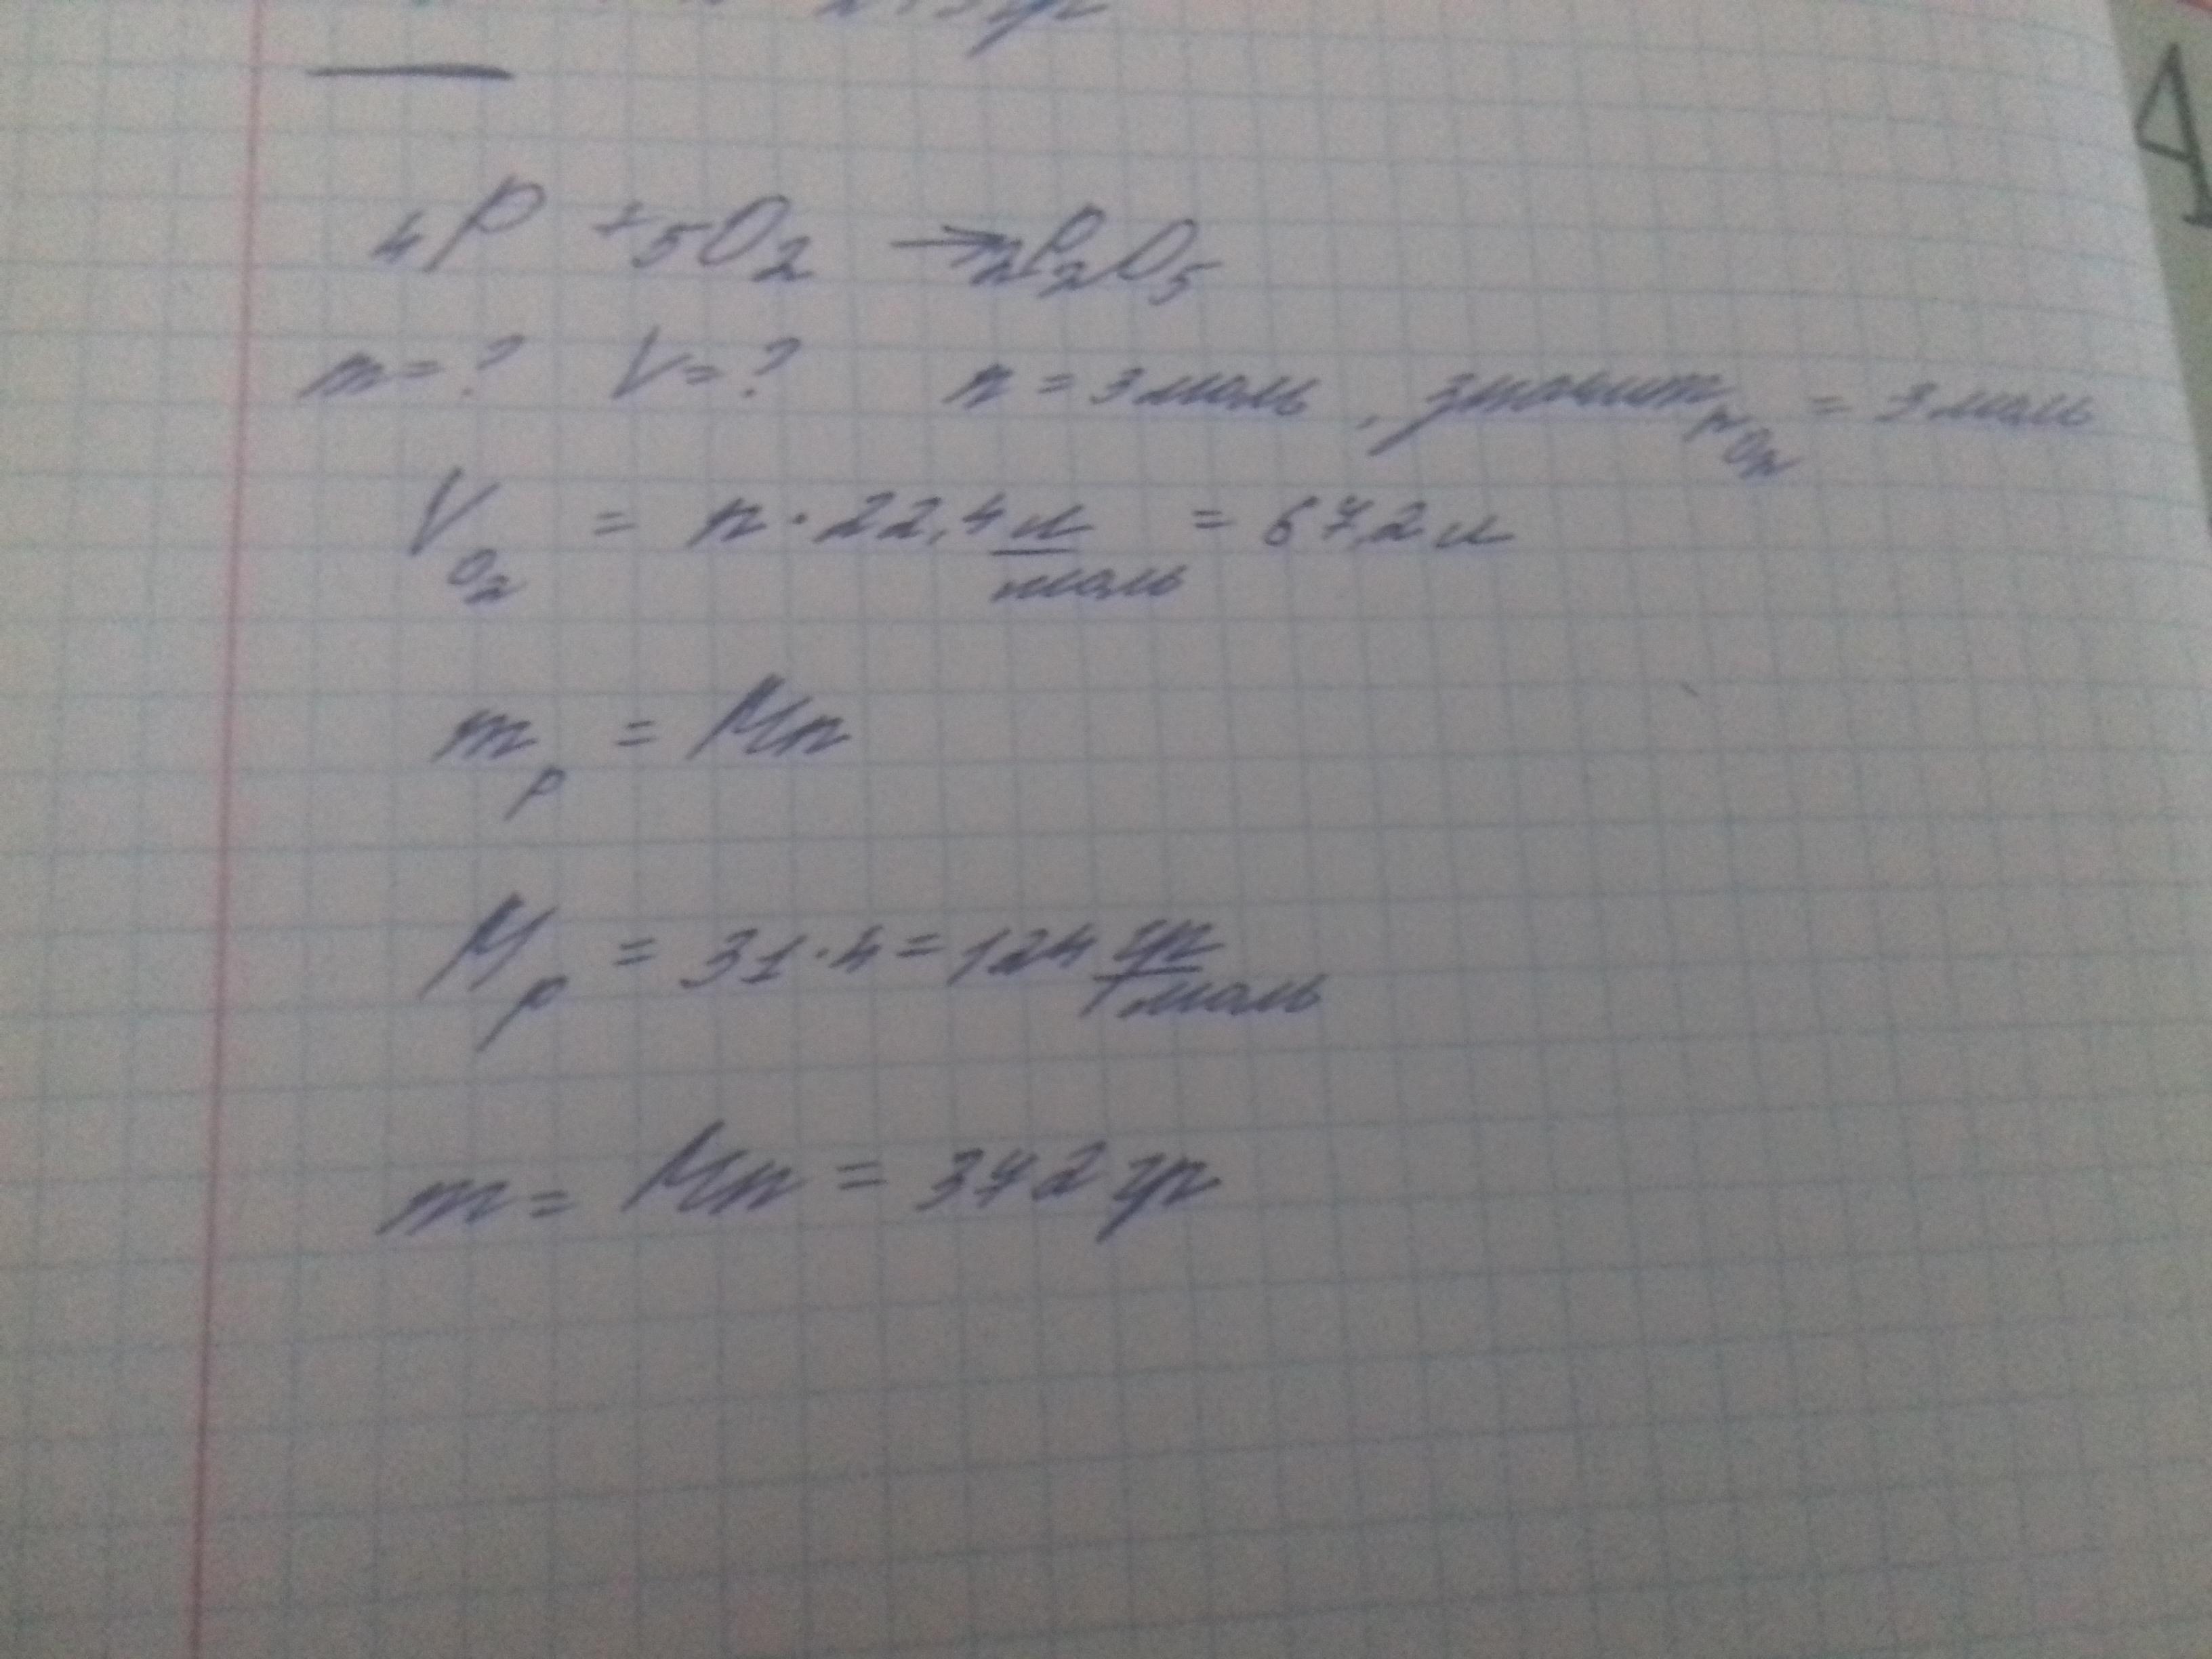 4P + 5O₂ → 2P₂O₅
m = ? V = ? n = 3 моль, значит n O₂ = 3 моль
V O₂ = n · 22,4 л/моль = 67,2 л
m p = Mn
M p = 31 · 4 = 124 гр/моль
m = Mn = 372 гр